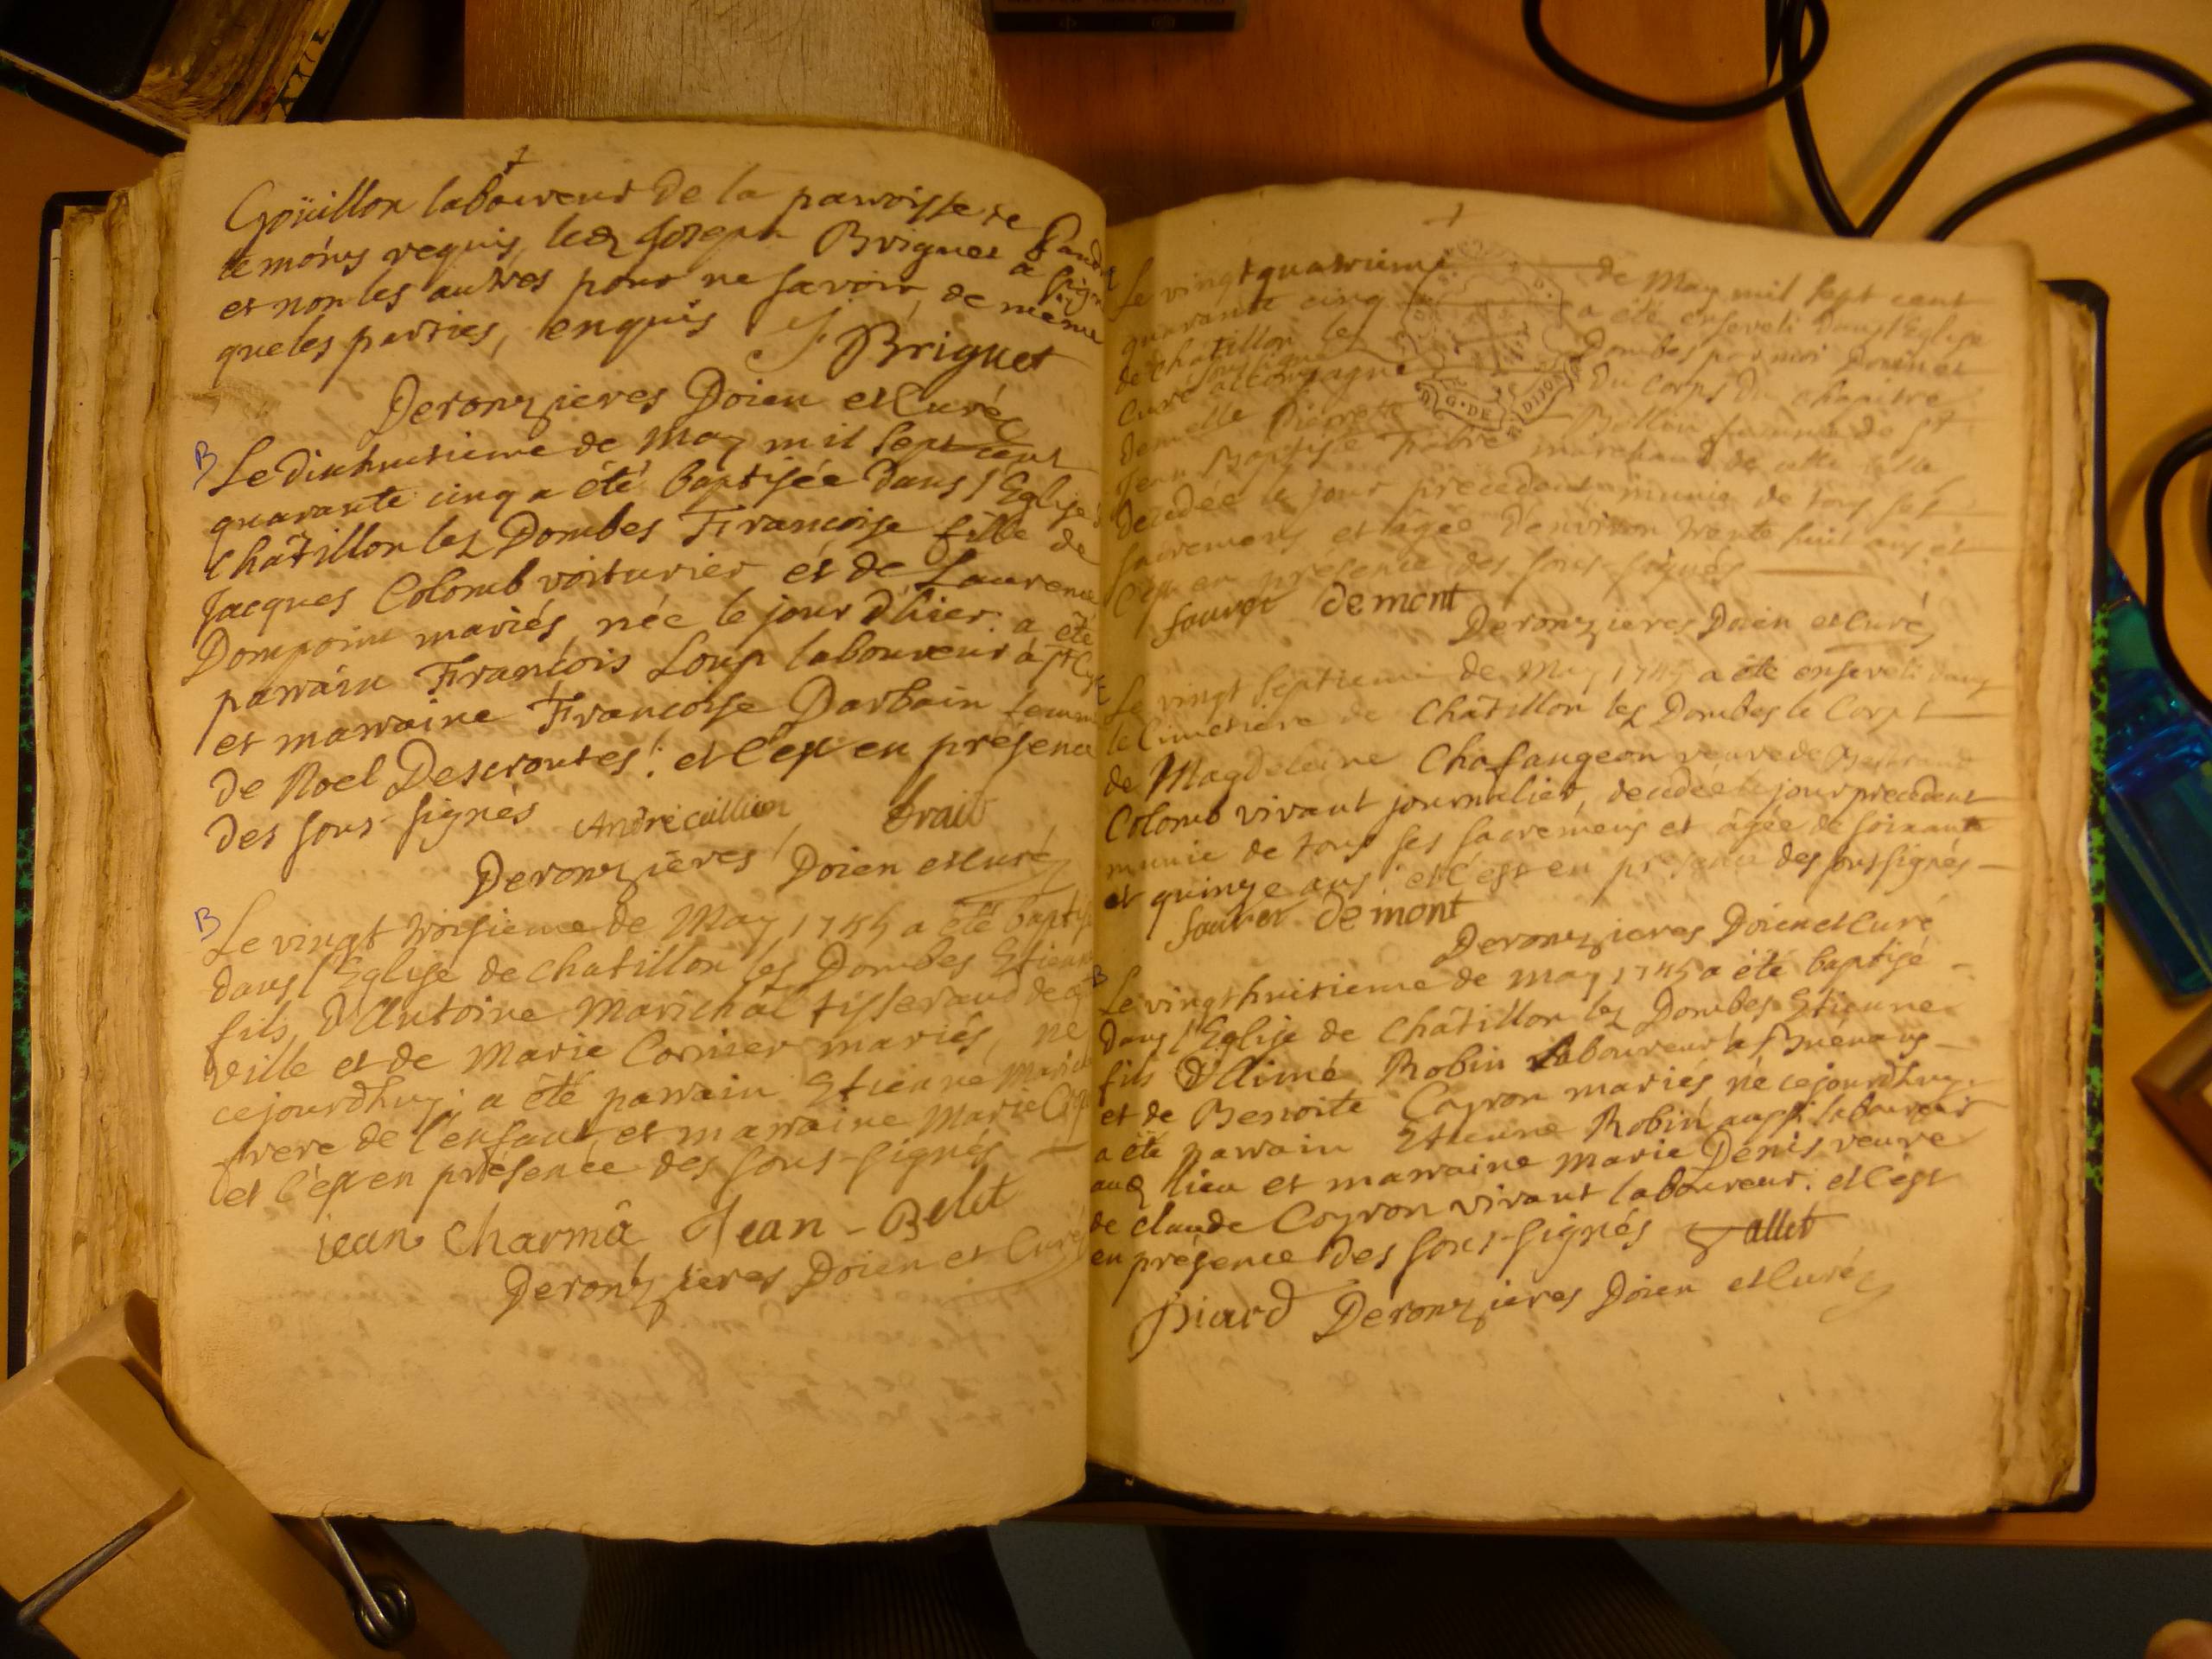 Goüillon laboureur de la parroisse de
temoins requis, led Joseph Briguet a signé
et non les autres pour ne savoir, de même
que les parties, enquis J Briguet
Deronzieres Doien et Curé
B Le dixhuitieme de May mil sept cent
quarante cinq a été baptisée dans l'Eglise de
Châtillon les Dombes Francoise fille de
Jacques Colomb voiturier, et de Laurence
Dompoint mariés, née le jour d'hier. a été
parrain Francois Loup laboureur à St Cyr
et marraine Francoise Darbain femme
de Noel Descroutes: et c'est en présence
des sous-signés André cullien brait
Deronzieres Doien et Curé
B Le vingt troisieme de May 1745 a été baptisé
dans l'Eglise de Chatillon les Dombes Etienne
fils d'Antoine Marichal tisserand de cette
ville et de Marie Cormier mariés, né
cejourdhuy; a été parrain Etienne Marichal
frere de l'enfant, et marraine Marie
et c'est en présence des sous-signés
jean Charmâ Jean-Belet
Deronzieres Doien et Curé
Le vingtquatrieme de May mil sept cent
quarante cinq a été enseveli dans l'Eglise
de Chatillon les Dombes par moi Doien et
Curé soussigné accompagné du corps du chapitre
demelle Pierrette Bellon femme de Sr
Jean Baptiste Fabre marchand de cette ville
decedée le jour precedent, munie de tous ses
sacremens et âgée d'environ trente huit ans et
c'est en présence des sous-signés
fauret demont
Deronzieres Doien et Curé
Le vingt septieme de May 1745 a été enseveli dans
le Cimetière de Châtillon les Dombes le Corps
de Magdeleine Chafangeon veuve de Bertrand
Colomb vivant journalier, decedée le jour precedent
munie de tous ses sacremens et âgée de soixante
et quinze ans: et c'est en présence des soussignés
fauret demont
Deronzieres Doien et Curé
B Le vingthuitieme de May 1745 a été baptisé
dans l'Eglise de Châtillon les Dombes Etienne
fils d'Aimé Robin laboureur à Frénans
et de Benoite Coyron mariés, né cejourdhuy.
a été parrain Etienne Robin aussi laboureur
aud lieu et marraine Marie Denis veuve
de claude Coyron vivant laboureur. et c'est
en présence des sous-signés Vallet
Piard Deronzieres Doien et Curé